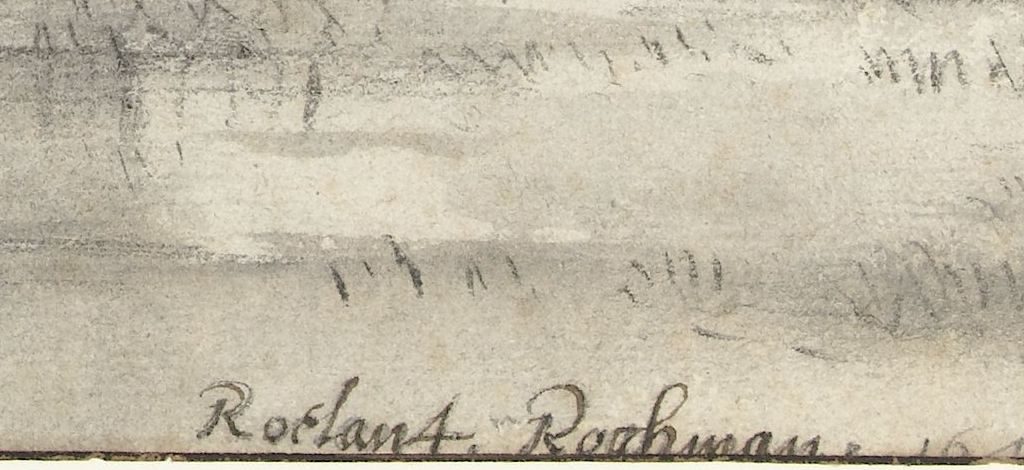 Roelant. Roghman. 16